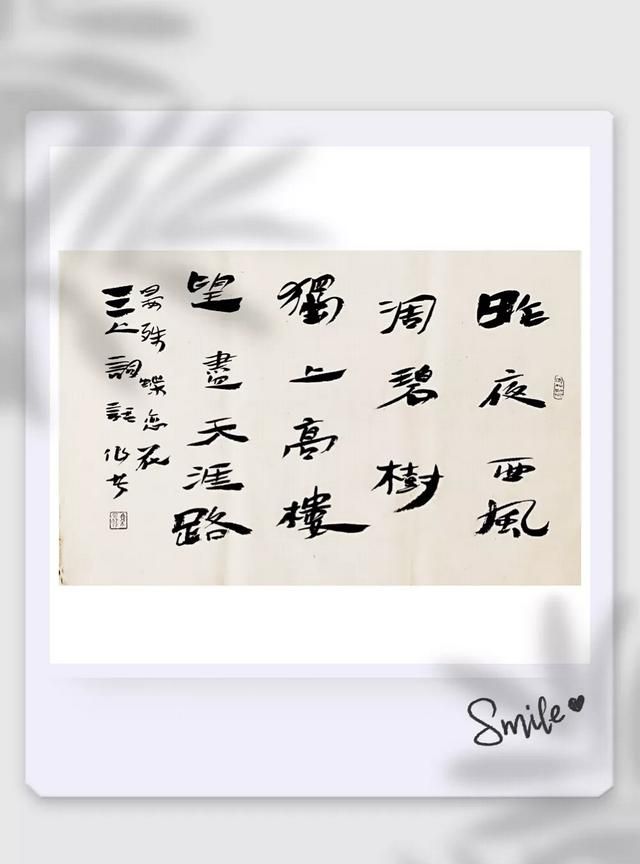 昨夜西風
凋碧樹
獨上高樓
望盡天涯路
晏殊 蝶恋花
三上詞
Smile